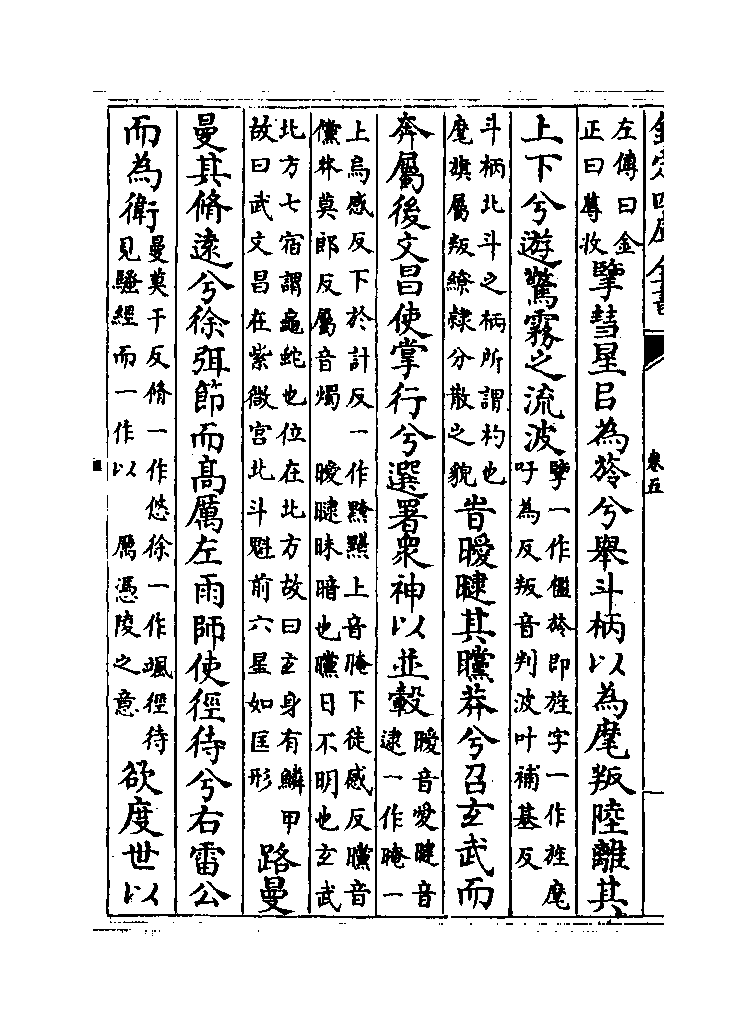 欽定四庫全書
卷五
左傳曰金
正曰蓐收
擥彗星㠯為旍兮舉斗柄以為麾叛陸離其
上下兮遊驚霧之流波
擥一作㩜旍即旌字一作旌麾
吁為反叛音判波叶補基反
斗柄北斗之柄所謂杓也
麾旗屬叛繚隸分散之貌
旹曖曃其曭莽兮召玄武而
奔屬後文昌使掌行兮選署衆神以並轂
曖音愛曃音
逮一作晻一
上烏感反下於計反一作黭黮上音晻下徒感反曭音
儻莽莫郎反屬音燭　曖曃昧暗也曭日不明也玄武
北方七宿謂龜蛇也位在北方故曰玄身有鱗甲
故曰武文昌在紫微宫北斗魁前六星如匡形
路曼
曼其脩逺兮徐弭節而髙厲左雨師使徑待兮右雷公
而為衛
曼莫干反脩一作悠徐一作颯徑待
見騷經而一作以　厲憑陵之意
欲度世以